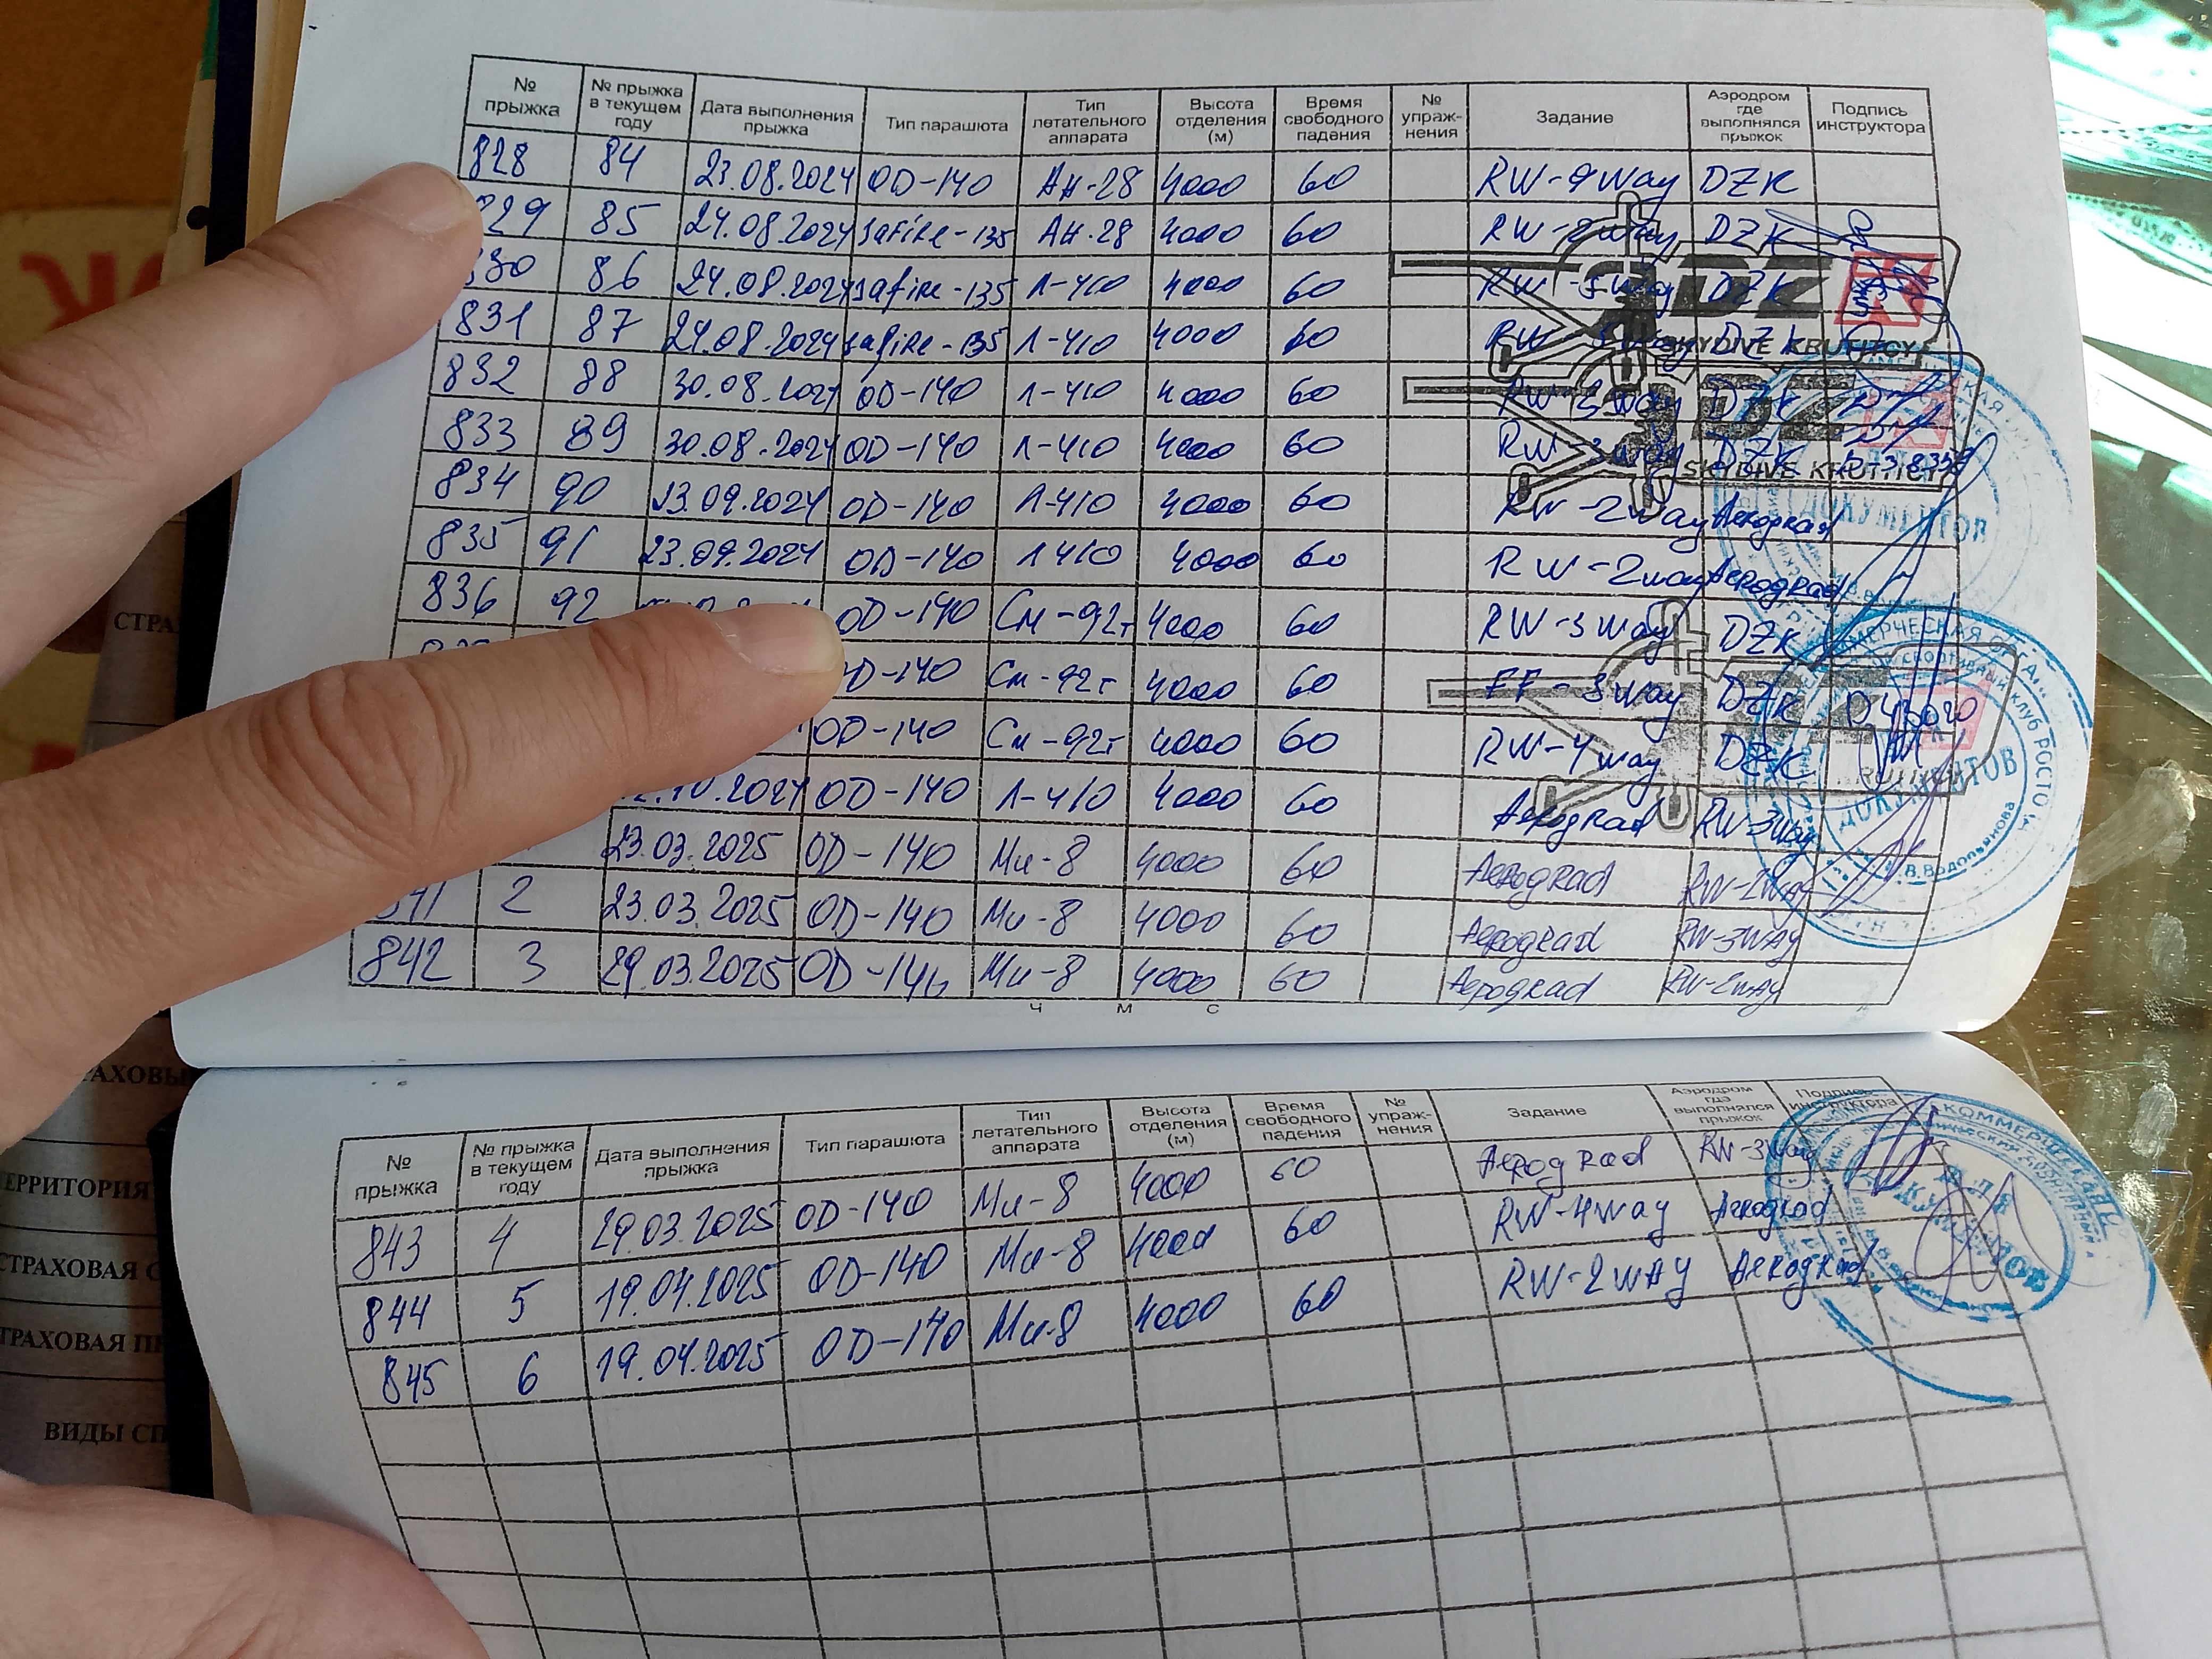 № прыжка № прыжка в текущем году Дата выполнения прыжка Тип парашюта Тип летательного аппарата Высота отделения (м) Время свободного падения № упраж-нения Задание Аэродром где выполнялся прыжок Подпись инструктора
828 84 23.08.2024 OD-140 АН-28 4000 60 RW-9way DZK
829 85 24.08.2024 safire-135 АН-28 4000 60 RW-2way DZK
830 86 24.08.2024 safire-135 Л-410 4000 60 RW-3way DZK
831 87 24.08.2024 safire-135 Л-410 4000 60 RW DZK
832 88 30.08.2024 OD-140 Л-410 4000 60 RW-3way DZK
833 89 30.08.2024 OD-140 Л-410 4000 60 RW-3way DZK
834 90 13.09.2024 OD-140 Л-410 4000 60 RW-2way Aerograd
835 91 23.09.2024 OD-140 Л410 4000 60 RW-2way Aerograd
836 92 OD-140 См-92т 4000 60 RW-3way DZK
OD-140 См-92т 4000 60 FF-3way DZK
OD-140 См-92т 4000 60 RW-4way DZK
10.2024 OD-140 Л-410 4000 60 Aerograd RW-3way
23.03.2025 OD-140 Ми-8 4000 60 Aerograd RW-2way
841 2 23.03.2025 OD-140 Ми-8 4000 60 Aerograd RW-3WAY
842 3 29.03.2025 OD-140 Ми-8 4000 60 Aerograd RW-2WAY
DZK
SKYDIVE KRUTITCY
DZ
SKYDIVE KRUTITCY
ДОКУМЕНТОВ
КОММЕРЧЕСКАЯ ОРГА
спортивный клуб РОСТО
ДОКУМЕНТОВ
В.Водопьянова
Ч М С
№ прыжка № прыжка в текущем году Дата выполнения прыжка Тип парашюта Тип летательного аппарата Высота отделения (м) Время свободного падения № упраж-нения Задание Аэродром где выполнялся прыжок Подпись инструктора
843 4 29.03.2025 OD-140 Ми-8 4000 60 Aerograd RW-3way
844 5 19.04.2025 OD-140 Ми-8 4000 60 RW-4way Aerograd
845 6 19.04.2025 OD-140 Ми-8 4000 60 RW-2WAY Aerograd
КОММЕРЧЕСКАЯ
ДЛЯ
СТРА
РАХОВЫ
ЕРРИТОРИЯ
СТРАХОВАЯ С
ТРАХОВАЯ ПР
ВИДЫ СП